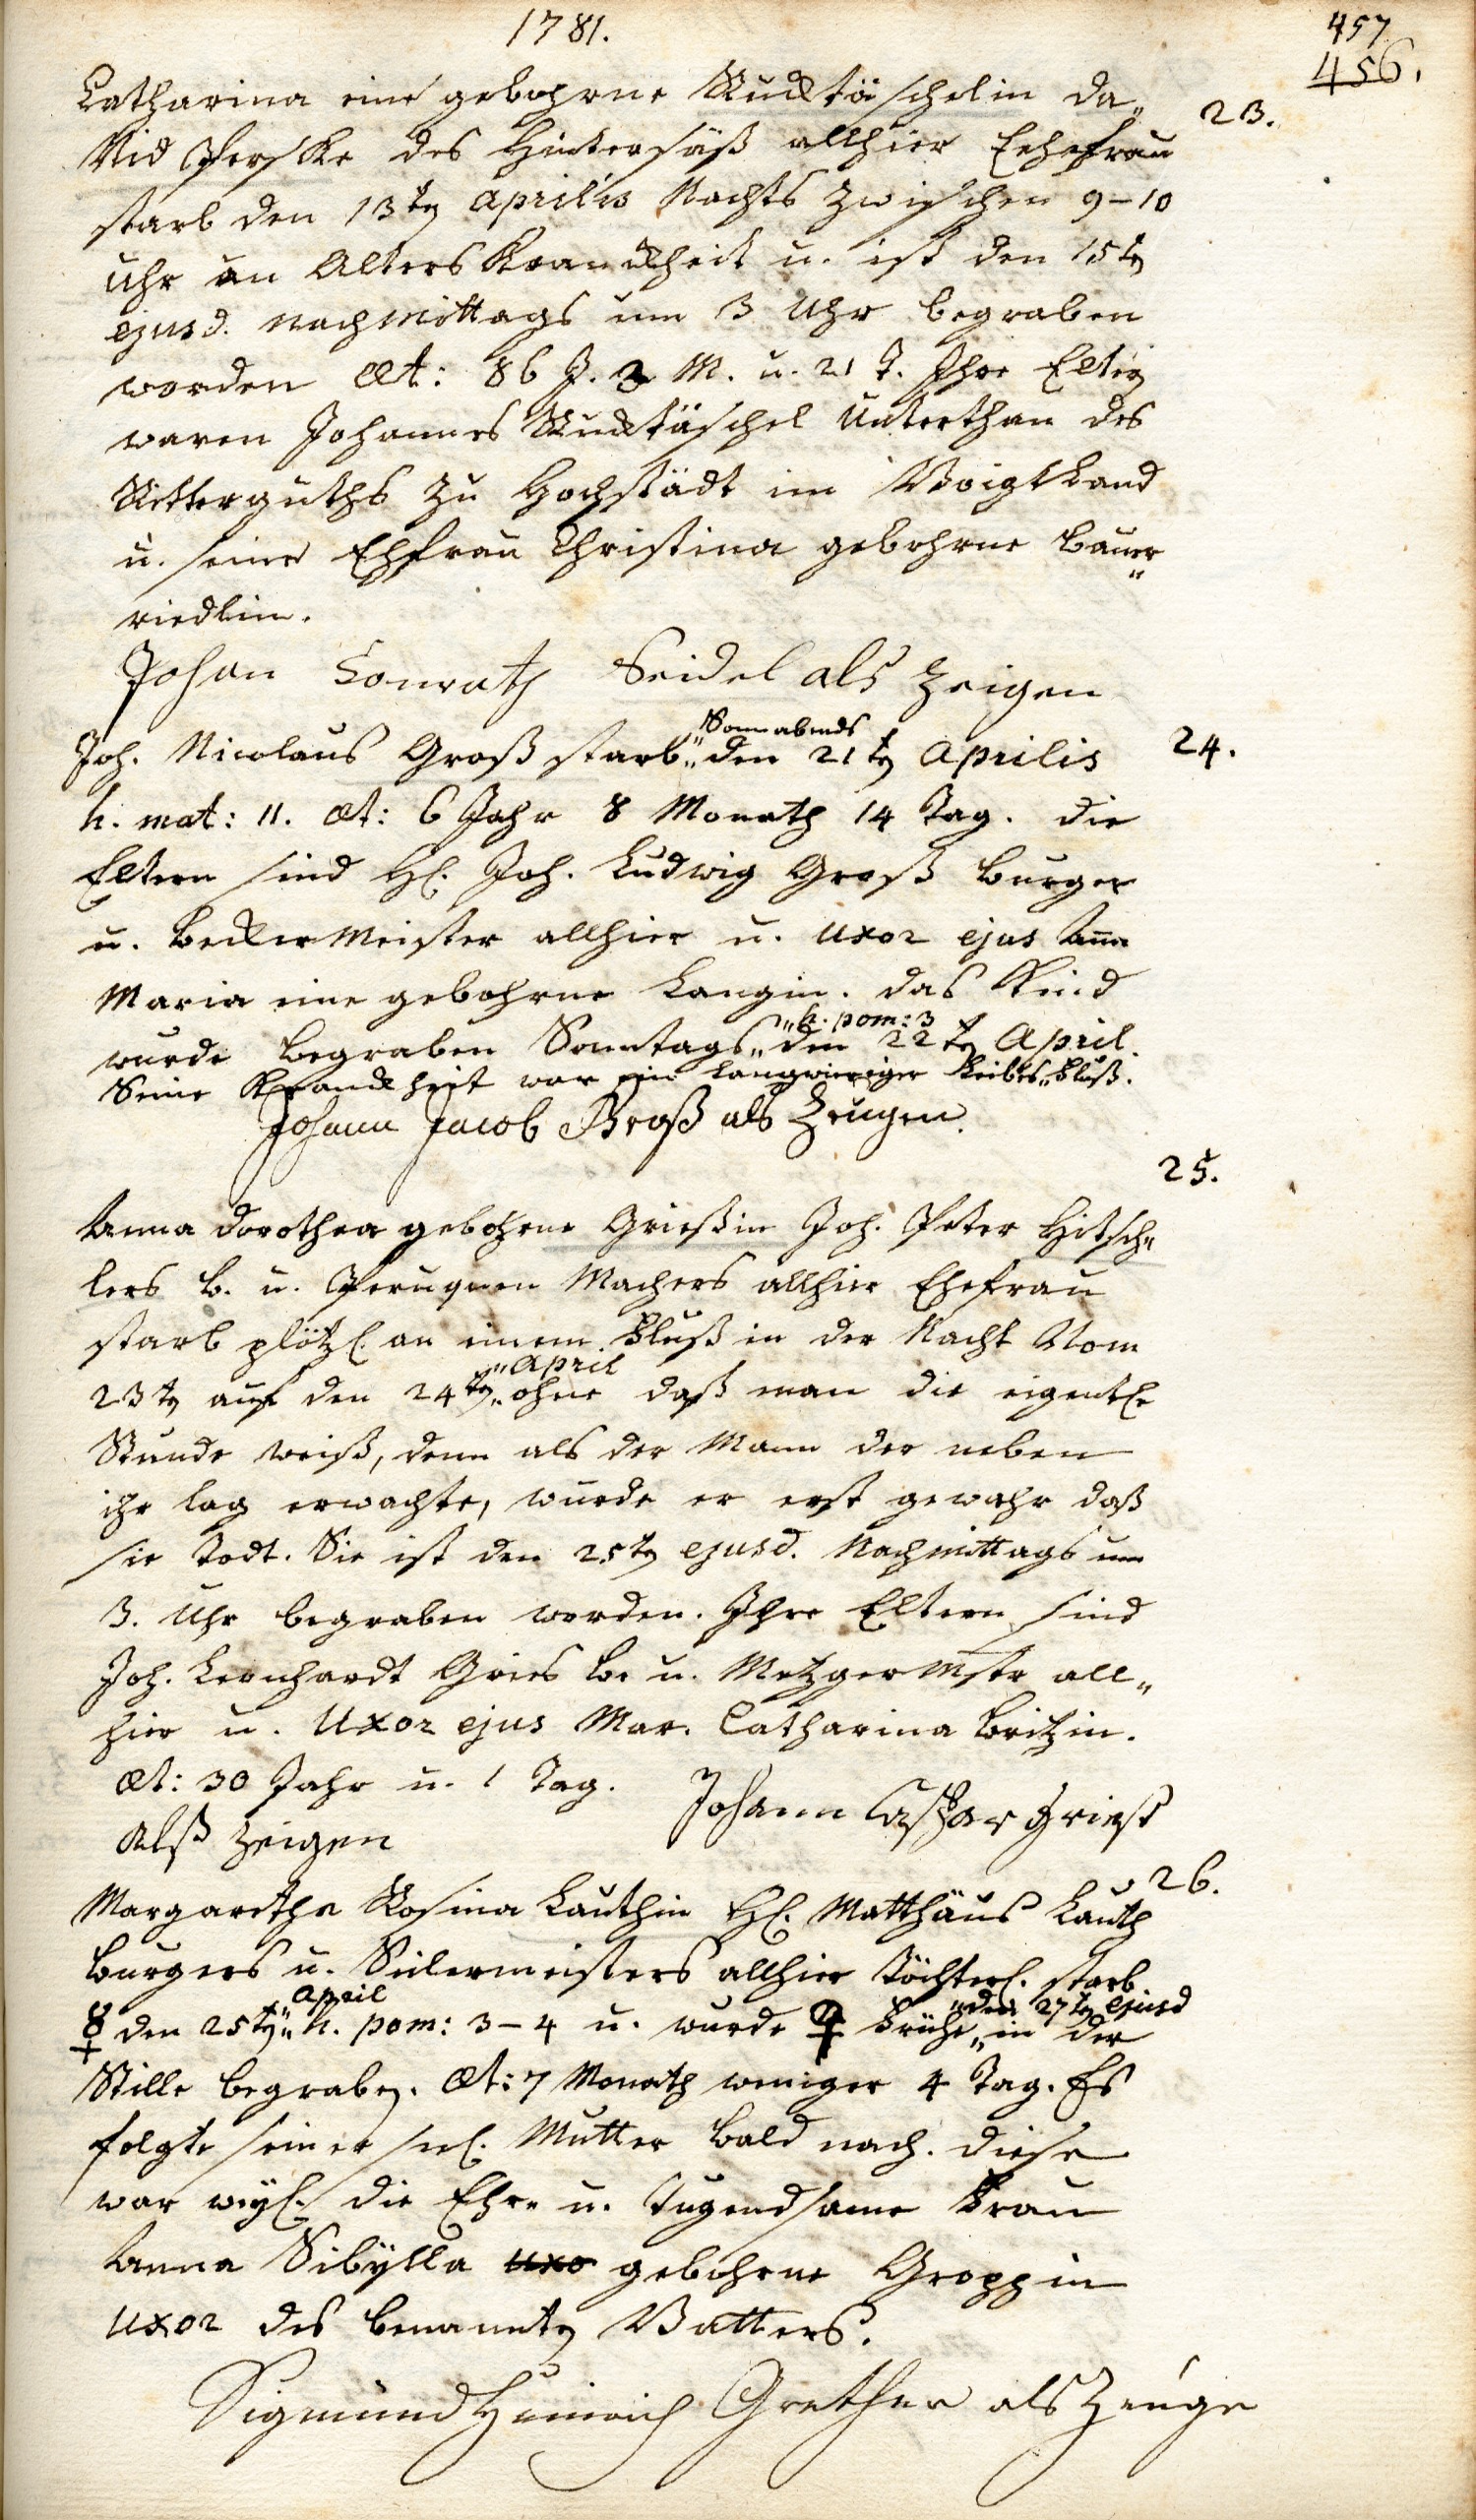 1781.
457
456.
Catharina eine gebohrne Rucktäschelin Da„
23.
vid Perske des Hintersäß allhier Ehefrau
starb den 13ten Aprilis Nachts zwischen 9–10
Uhr an Alters Kranckheit u. ist den 15ten
ejusd. Nachmittags um 3 Uhr begraben
worden Æt: 86 J. 2 M. u. 21 T. Ihre Eltern
waren Johannes Rucktäschel Unterthan des
Ritterguths zu Hochstädt im Voigtland
u. seine Ehfrau Christina gebohrne Bauer„
riedlin.
Johan Conrath Seidel als Zeigen
Joh. Nicolaus Groß starb „Sonnabends„ den 21ten Aprilis
24.
h. mat: 11. æt: 6 Jahr 8 Monath 14 Tag. Die
Eltern sind H. Joh. Ludwig Groß Burger
u. Beckermeister allhier u. uxor ejus Anna
Maria eine gebohrne Langin. Das Kind
wurde begraben Sonntags „h. pom: 3„ den 22ten April.
Seine Kranckheit war ein langwieriger Leibes„Fluß.
Johann Jacob Groß als Zeugen.
25.
Anna Dorothea gebohrne Grießin Joh. Peter Hitsch„
lers B. u. Peruquen Machers allhier Ehefrau
starb plötzl. an einem Fluß in der Nacht vom
23ten auf den 24ten „April„ ohne daß man die eigentl.
Stunde weiß, denn als der Mann der neben
ihr lag erwachte, wurde er erst gewahr daß
sie todt. Sie ist den 25ten ejusd. Nachmittags um
3. Uhr begraben worden. Ihre Eltern sind
Joh. Leonhardt Gries Br u. Metzger Mstr all„
hier u. Uxor ejus Mar. Catharina Britzin.
æt: 30 Jahr u. 1 Tag. Johann Caspar Griest
Alß Zeigen
26.
Margaretha Rosina Lauthin H. Matthäus Lauth
Burgers u. Seilermeisters allhier Töchterl. starb
☿ den 25ten „April„ h. pom: 3–4 u. wurde ♀ Frühe „den 27ten ejusd„ in der
Stille begraben. Æt: 7 Monath weniger 4 Tag. Es
folgte seiner seel. Mutter bald nach. Diese
war weyl. die Ehr„ u. Tugendsame Frau
Anna Sibylla uxo gebohrne Groppin
uxor des benannten Vatters.
Sigmund Heinrich Grether als Zeuge